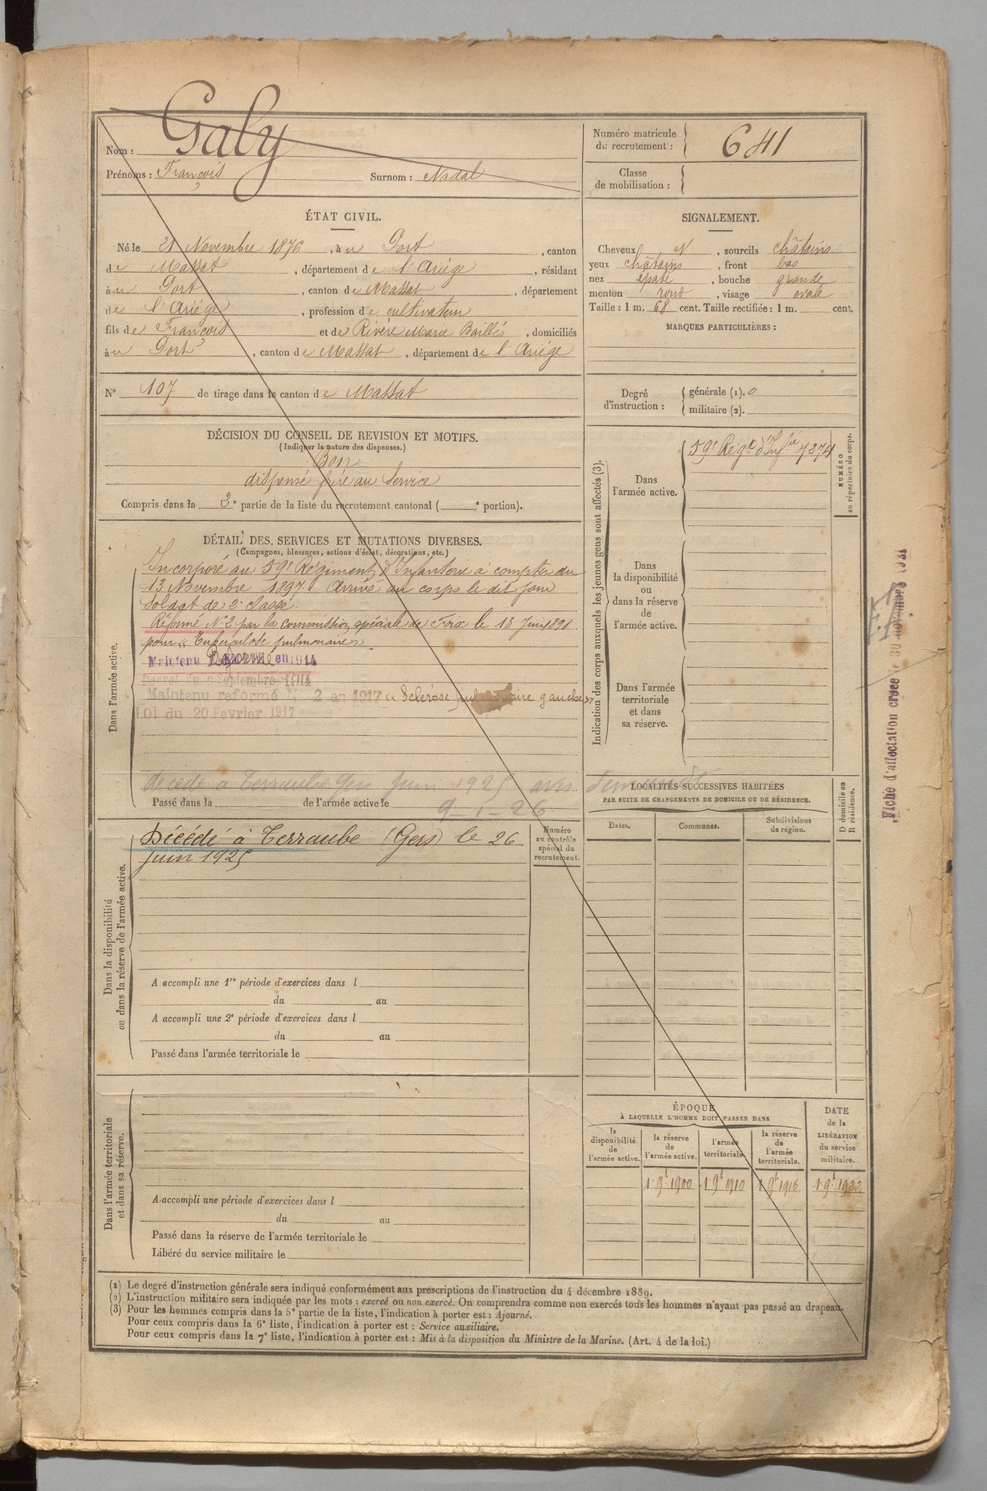 Nom : Galy
Prénoms : François Surnom : Nadal
Numéro matricule du recrutement : 641
Classe de mobilisation :
ÉTAT CIVIL.
Né le 21 Novembre 1876, à u Port, canton
de Massat, département de l'Ariège, résidant
à u Port, canton de Massat, département
de l'Ariège, profession de cultivateur
fils de François et de Rivère Marie Baillés, domiciliés
à u Port, canton de Massat, département de l'Ariège
N° 107 de tirage dans le canton de Massat
SIGNALEMENT.
Cheveux N, sourcils châtains
yeux châtains, front bas
nez épaté, bouche grande
menton rond, visage ovale
Taille : 1 m. 68 cent. Taille rectifiée : 1 m. cent.
MARQUES PARTICULIÈRES :
Degré d'instruction :
générale (1). 0
militaire (2).
DÉCISION DU CONSEIL DE REVISION ET MOTIFS.
(Indiquer la nature des dispenses.)
Bon
dispensé frère au service
Compris dans la 2e partie de la liste du recrutement cantonal ( e portion).
DÉTAIL DES SERVICES ET MUTATIONS DIVERSES.
(Campagnes, blessures, actions d'éclat, décorations, etc.)
Dans l'armée active.
Incorporé au 59e Régiment d'Infanterie à compter du
13 Novembre 1897. Arrivé au corps le dit jour
soldat de 2e classe.
Réformé N° 2 par la commission spéciale de Foix le 13 Juin 1898
pour « Tuberculose pulmonaire »
Maintenu RÉFORMÉ en 1914
Décret du 9 Septembre 1914
Maintenu réformé N° 2 en 1917 « Sclérose pulmonaire gauche »
Loi du 20 Février 1917
décédé à Terraube Gers Juin 1925 avis
Passé dans la de l'armée active le
9-1-26
Indication des corps auxquels les jeunes gens sont affectés (3).
Dans l'armée active.
59e Régt d'Infie 7274
NUMÉRO au répertoire du corps.
Dans la disponibilité ou dans la réserve de l'armée active.
Dans l'armée territoriale et dans sa réserve.
Fiche d'affectation créée le 30 novembre 1921
Dans la disponibilité ou dans la réserve de l'armée active.
Décédé à Terraube (Gers) le 26
Juin 1925
Numéro au contrôle spécial du recrutement.
A accompli une 1re période d'exercices dans l
du au
A accompli une 2e période d'exercices dans l
du au
Passé dans l'armée territoriale le
LOCALITÉS SUCCESSIVES HABITÉES
PAR SUITE DE CHANGEMENTS DE DOMICILE OU DE RÉSIDENCE.
Dates. Communes. Subdivisions de région. D domicile ou R résidence.
Dans l'armée territoriale et dans sa réserve.
A accompli une période d'exercices dans l
du au
Passé dans la réserve de l'armée territoriale le
Libéré du service militaire le
ÉPOQUE
À LAQUELLE L'HOMME DOIT PASSER DANS
la disponibilité de l'armée active.
la réserve de l'armée active.
l'armée territoriale.
la réserve de l'armée territoriale.
DATE de la LIBÉRATION du service militaire.
1 9t 1900 1 9t 1910 1 9t 1916 1 9t 1922
(1) Le degré d'instruction générale sera indiqué conformément aux prescriptions de l'instruction du 4 décembre 1889.
(2) L'instruction militaire sera indiquée par les mots : exercé ou non exercé. On comprendra comme non exercés tous les hommes n'ayant pas passé au drapeau.
(3) Pour les hommes compris dans la 5e partie de la liste, l'indication à porter est : Ajourné.
Pour ceux compris dans la 6e liste, l'indication à porter est : Service auxiliaire.
Pour ceux compris dans la 7e liste, l'indication à porter est : Mis à la disposition du Ministre de la Marine. (Art. 4 de la loi.)